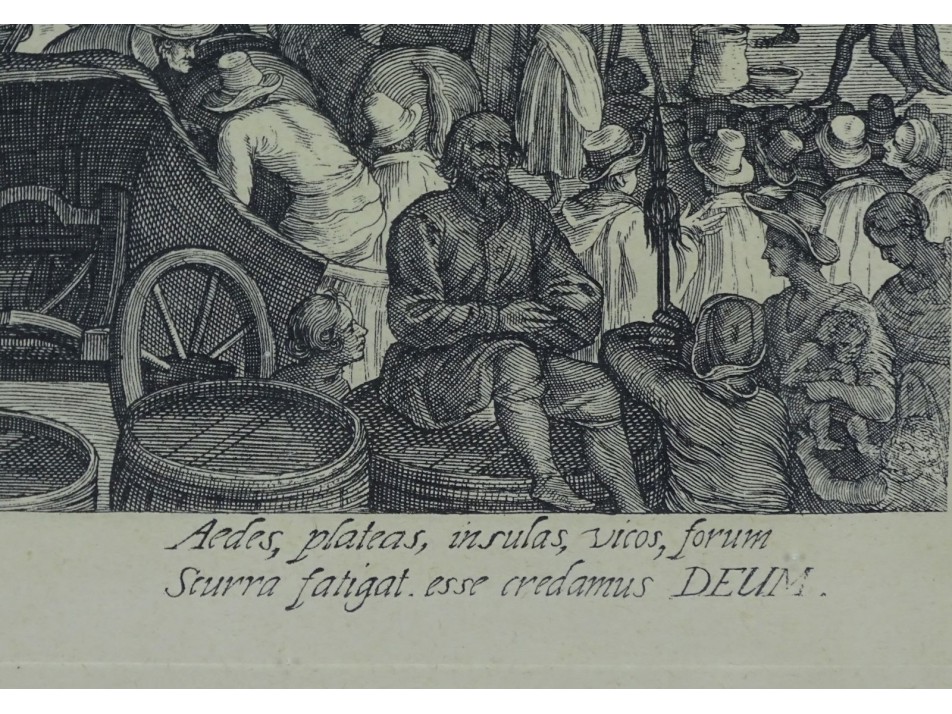 Aedes, plateas, insulas, vicos, forum
Scurra fatigat. esse credamus DEUM.